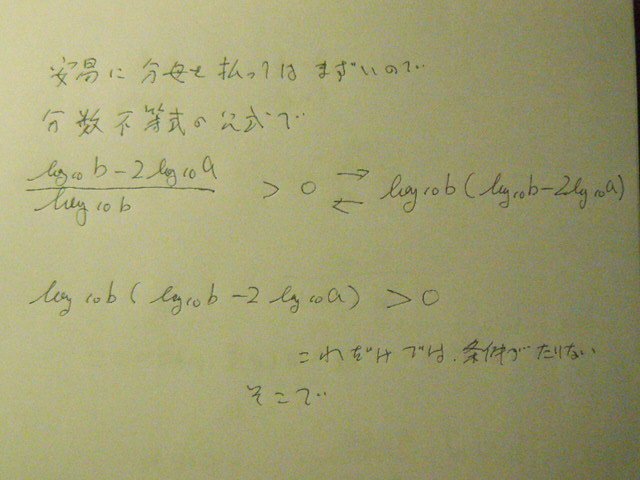 安易に分母を払ってはまずいので
分数不等式の公式で
log₁₀b-2log₁₀a / log₁₀b > 0 ⇄ log₁₀b(log₁₀b-2log₁₀a)
log₁₀b(log₁₀b-2log₁₀a)>0
これだけでは、条件がたりない
そこで